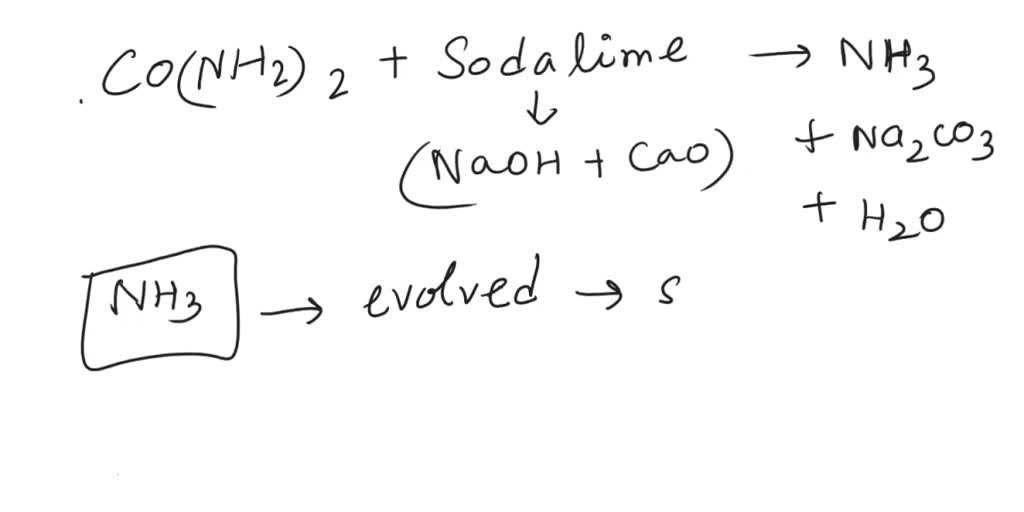 Co(NH2)2 + Sodalime → NH3
↓
(NaOH + CaO) + Na2CO3
+ H2O
NH3 → evolved → s